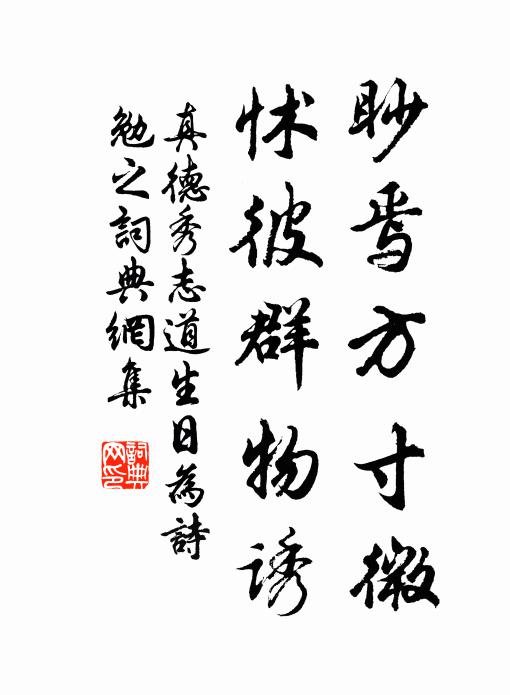 眇焉方寸微
怵彼群物誘
真德秀志道生日為詩
勉之詞典網集
詞典網印